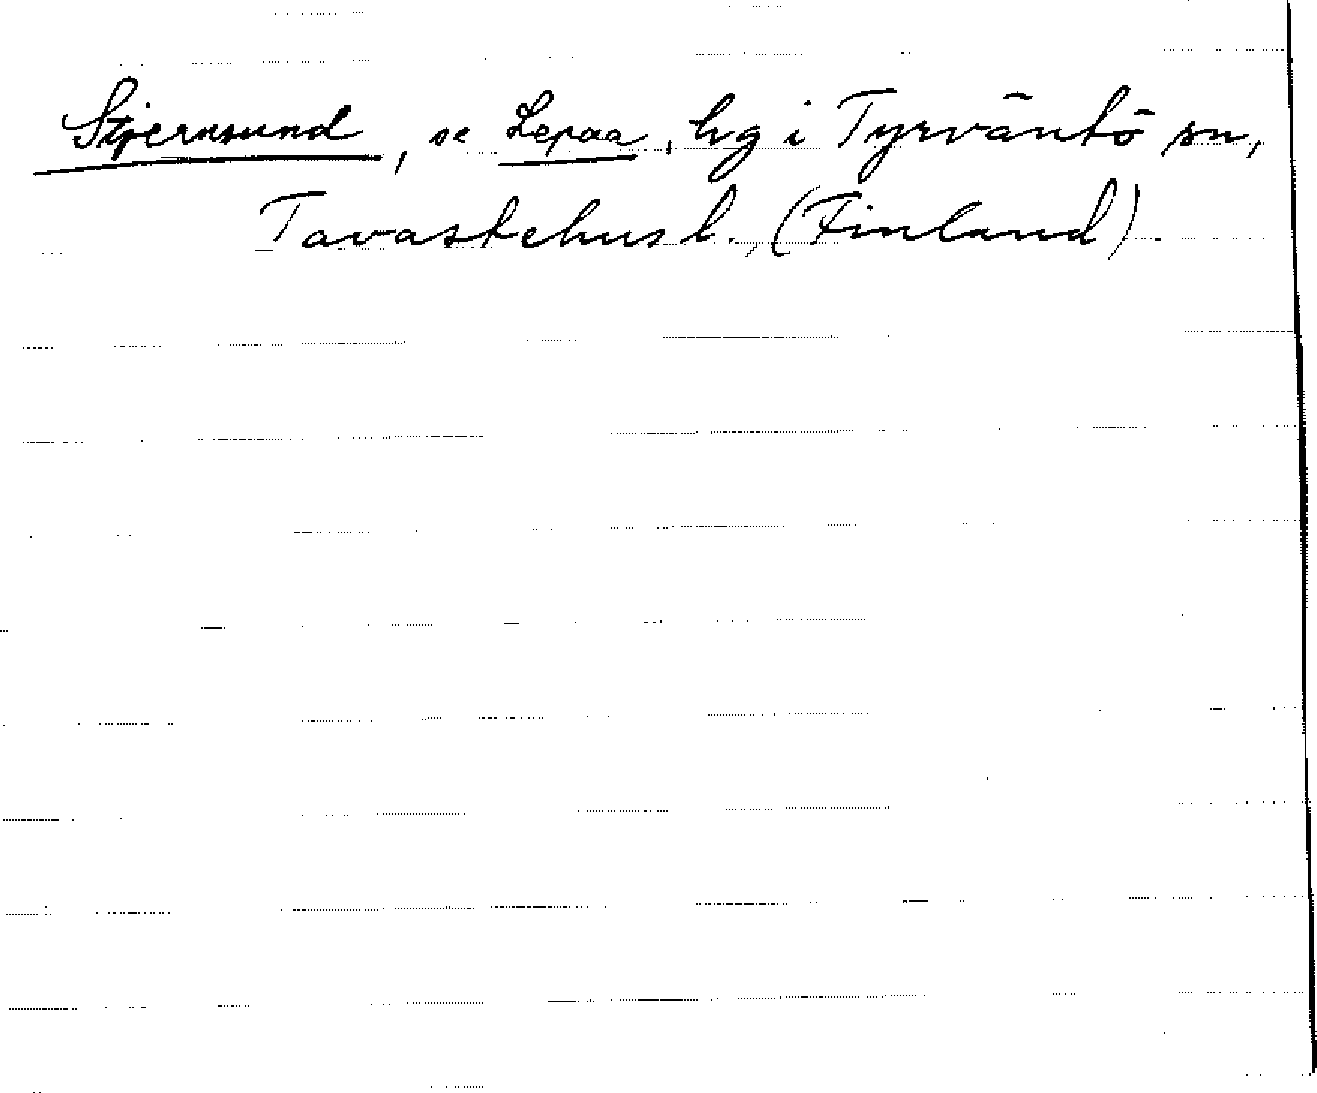 Stjernsund, se Lepaa, hg i Tyrväntö sn,
Tavastehus l. (Finland)